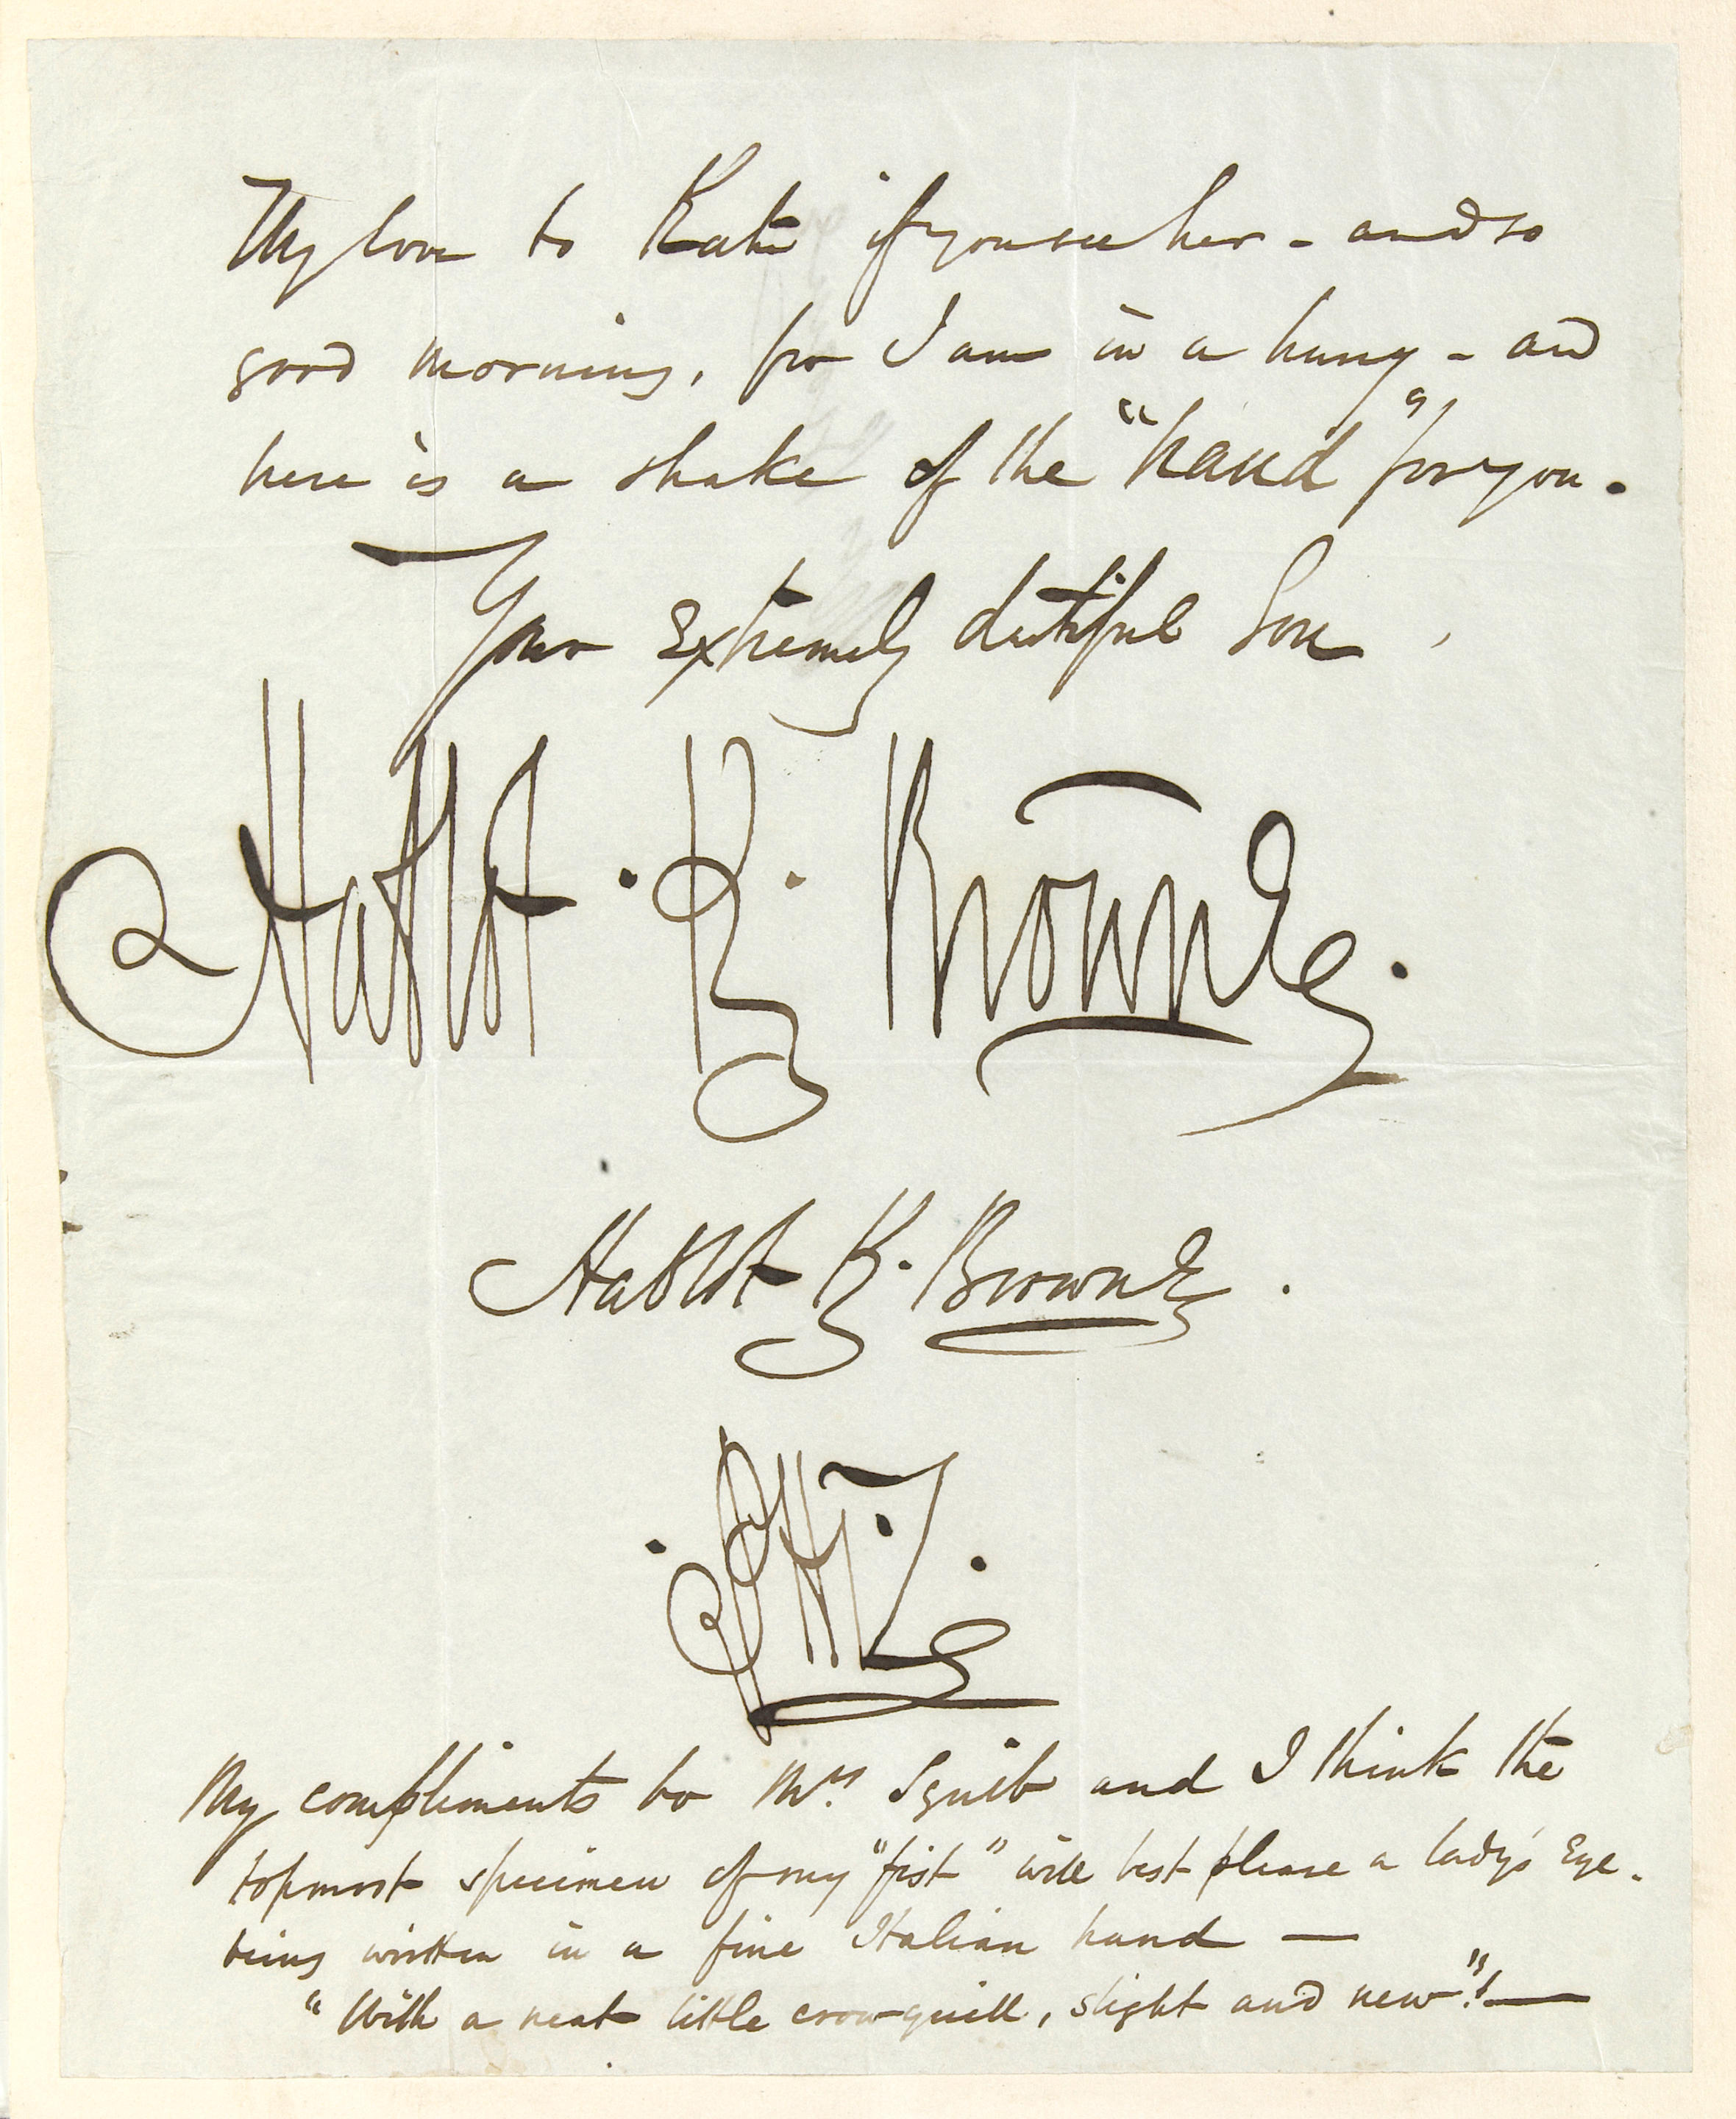 My love to Kate if you see her - and so
good morning, for I am in a hurry - and
here is a shake of the "hand" for you.
Your extremely dutiful Son,
Hablot. K. Browne.
Hablot K. Browne.
. Phiz.
My compliments to Mrs. Squib and I think the
topmost specimen of my "fist" will best please a lady's Eye.
being written in a fine Italian hand —
"With a neat little crow quill, slight and new"! —